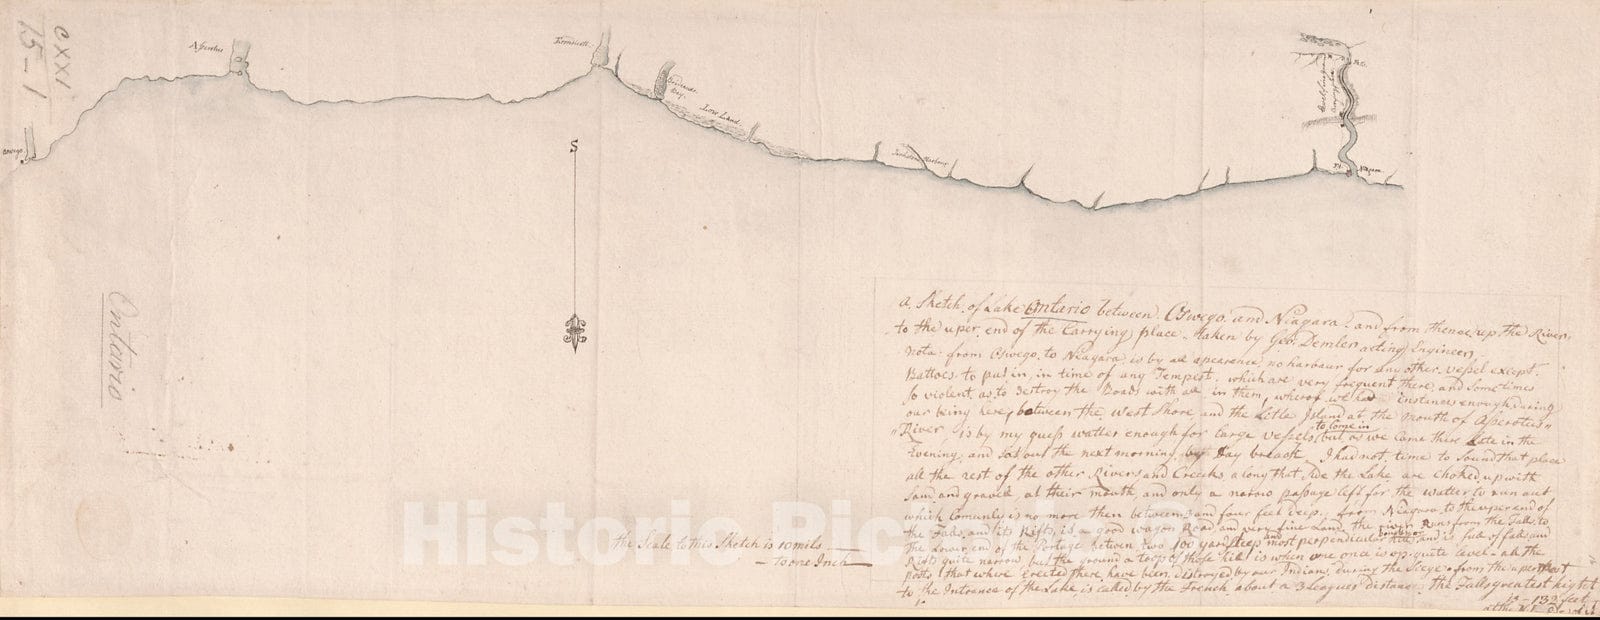 CXXI
15-1
Oswego
Ironducett
Low Land
Niagara
S
Ontario
A Sketch of Lake Ontario between Oswego and Niagara and from thence up the River
to the uper end of the Carrying place, taken by Geo: Demler acting Engineer
Nota: from Oswego to Niagara is by all apearence no harbour for any other vessel except
Battoes to put in, in time of any Tempest, which are very frequent there, and sometimes
so violent as to destroy the Boads with all in them, whereof we had instances enough during
our being here, between the West Shore and the Litle Island at the mouth of Asperoteus
River is by my guess watter enough for large vessels to come in but as we came there late in the
Evening and sat out the next morning by Day breack I had not time to sound that place
all the rest of the other Rivers and Creeks along that side the Lake are choked up with
Sand and gravel at their mouth and only a narow passage left for the watter to run out
which Comunly is no more then between and four feet deep, from Niagara to the uper end of
the Falls, and its Rifts is a good wagon Road and very fine Land, the river Runs from the Falls to
the Lower end of the Portage between two 100 yard steep and most perpendicular and is full of falls and
Rifts quite narrow, but the ground a top of those is when one once is up quite level - all the
Posts that where erected there have been distroyed by our Indians during the Siege from the uper
to the Intrance of the Lake is called by the French about a 3 Leagues Distance, the Falls greatest hight
is - 132 feet
the Scale to this Sketch is 10 mils
to one Inch
Historic Pic